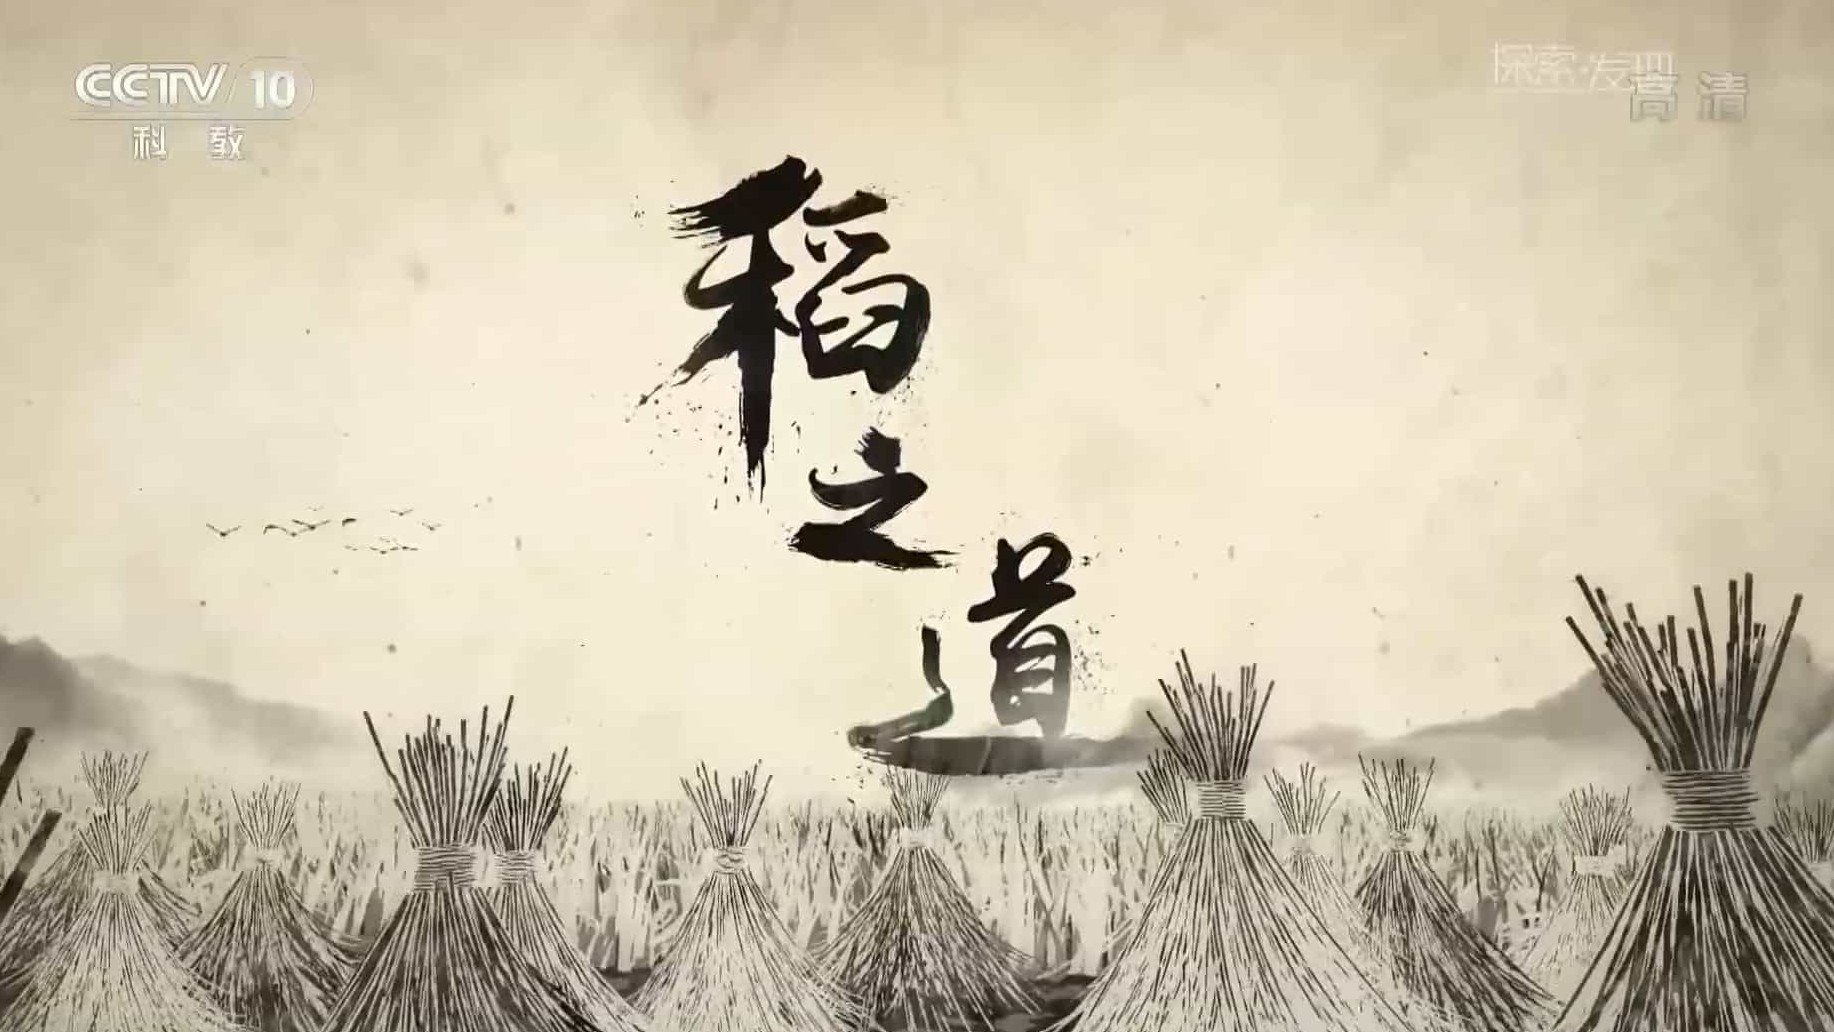 CCTV 10
科 教
探索·发现
高清
稻
之
道